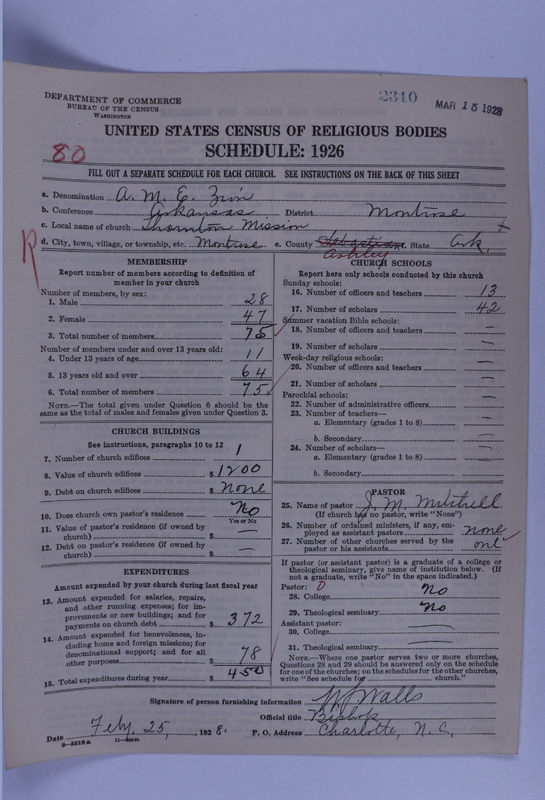 2310
MAR 15 1928
DEPARTMENT OF COMMERCE
BUREAU OF THE CENSUS
WASHINGTON
UNITED STATES CENSUS OF RELIGIOUS BODIES
80
SCHEDULE: 1926
FILL OUT A SEPARATE SCHEDULE FOR EACH CHURCH. SEE INSTRUCTIONS ON THE BACK OF THIS SHEET
a. Denomination A. M. E. Zion
b. Conference Arkansas District Montrose
c. Local name of church Thornton Mission
d. City, town, village, or township, etc. Montrose e. County Ashley State Ark.
R
MEMBERSHIP
Report number of members according to definition of
member in your church
Number of members, by sex:
1. Male 28
2. Female 47
3. Total number of members 75
Number of members under and over 13 years old:
4. Under 13 years of age 11
5. 13 years old and over 64
6. Total number of members 75
NOTE.—The total given under Question 6 should be
same as the total of males and females given under Question 3.
CHURCH BUILDINGS
See instructions, paragraphs 10 to 12
7. Number of church edifices 1
8. Value of church edifices $ 1200
9. Debt on church edifices $ None
10. Does church own pastor's residence? No
Yes or No
11. Value of pastor's residence (if owned by
church) $ —
12. Debt on pastor's residence (if owned by
church) $ —
EXPENDITURES
Amount expended by your church during last fiscal year
13. Amount expended for salaries, repairs,
and other running expenses; for im-
provements or new buildings; and for
payments on church debt $ 372
14. Amount expended for benevolences, in-
cluding home and foreign missions; for
denominational support; and for all
other purposes $ 78
15. Total expenditures during year $ 450
CHURCH SCHOOLS
Report here only schools conducted by this church
Sunday schools:
16. Number of officers and teachers 13
17. Number of scholars 42
Summer vacation Bible schools:
18. Number of officers and teachers —
19. Number of scholars —
Week-day religious schools:
20. Number of officers and teachers —
21. Number of scholars —
Parochial schools:
22. Number of administrative officers —
23. Number of teachers—
a. Elementary (grades 1 to 8) —
b. Secondary —
24. Number of scholars—
a. Elementary (grades 1 to 8) —
b. Secondary —
PASTOR
25. Name of pastor J. M. Mitchell
(If church has no pastor, write "None")
26. Number of ordained ministers, if any, em-
ployed as assistant pastors none
27. Number of other churches served by the
pastor or his assistants one
If pastor (or assistant pastor) is a graduate of a college or
theological seminary, give name of institution below. (If
not a graduate, write "No" in the space indicated.)
Pastor: 0
28. College No
29. Theological seminary No
Assistant pastor:
30. College —
31. Theological seminary —
NOTE.—Where one pastor serves two or more churches,
Questions 28 and 29 should be answered only on the schedule
for one of the churches; on the schedules for the other churches,
write "See schedule for church."
Signature of person furnishing information W J Walls
Official title Bishop
Date Feby. 25, 1928. P. O. Address Charlotte, N. C.